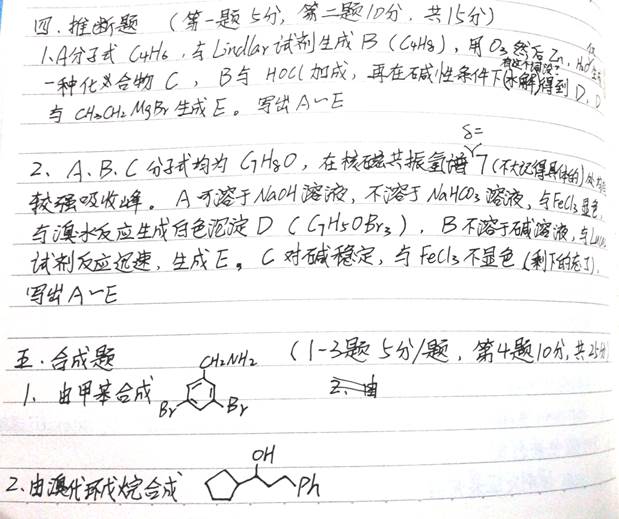 四、推断题 (第一题5分, 第二题10分, 共15分)
1. A分子式 C4H6, 与Lindlar试剂生成B (C4H8), 用O3然后Zn, H2O 仅生成
一种化合物C, B与HOCl加成, 再在碱性条件下(水解)得到D, D
与CH3CH2MgBr生成E。写出A~E
δ=
2、A、B、C分子式均为C7H8O, 在核磁共振氢谱 7 (不大记得具体的)处均有
较强吸收峰。A可溶于NaOH溶液, 不溶于NaHCO3溶液, 与FeCl3显色
与溴水反应生成白色沉淀D (C7H5OBr3), B不溶于碱溶液, 与Lucas
试剂反应迅速, 生成E。C对碱稳定, 与FeCl3不显色 (剩下的忘了)。
写出A~E
五. 合成题 (1-3题 5分/题, 第4题10分, 共25分)
CH2NH2
1. 由甲苯合成 Br Br 2、由
OH
2、由溴代环戊烷合成 Ph